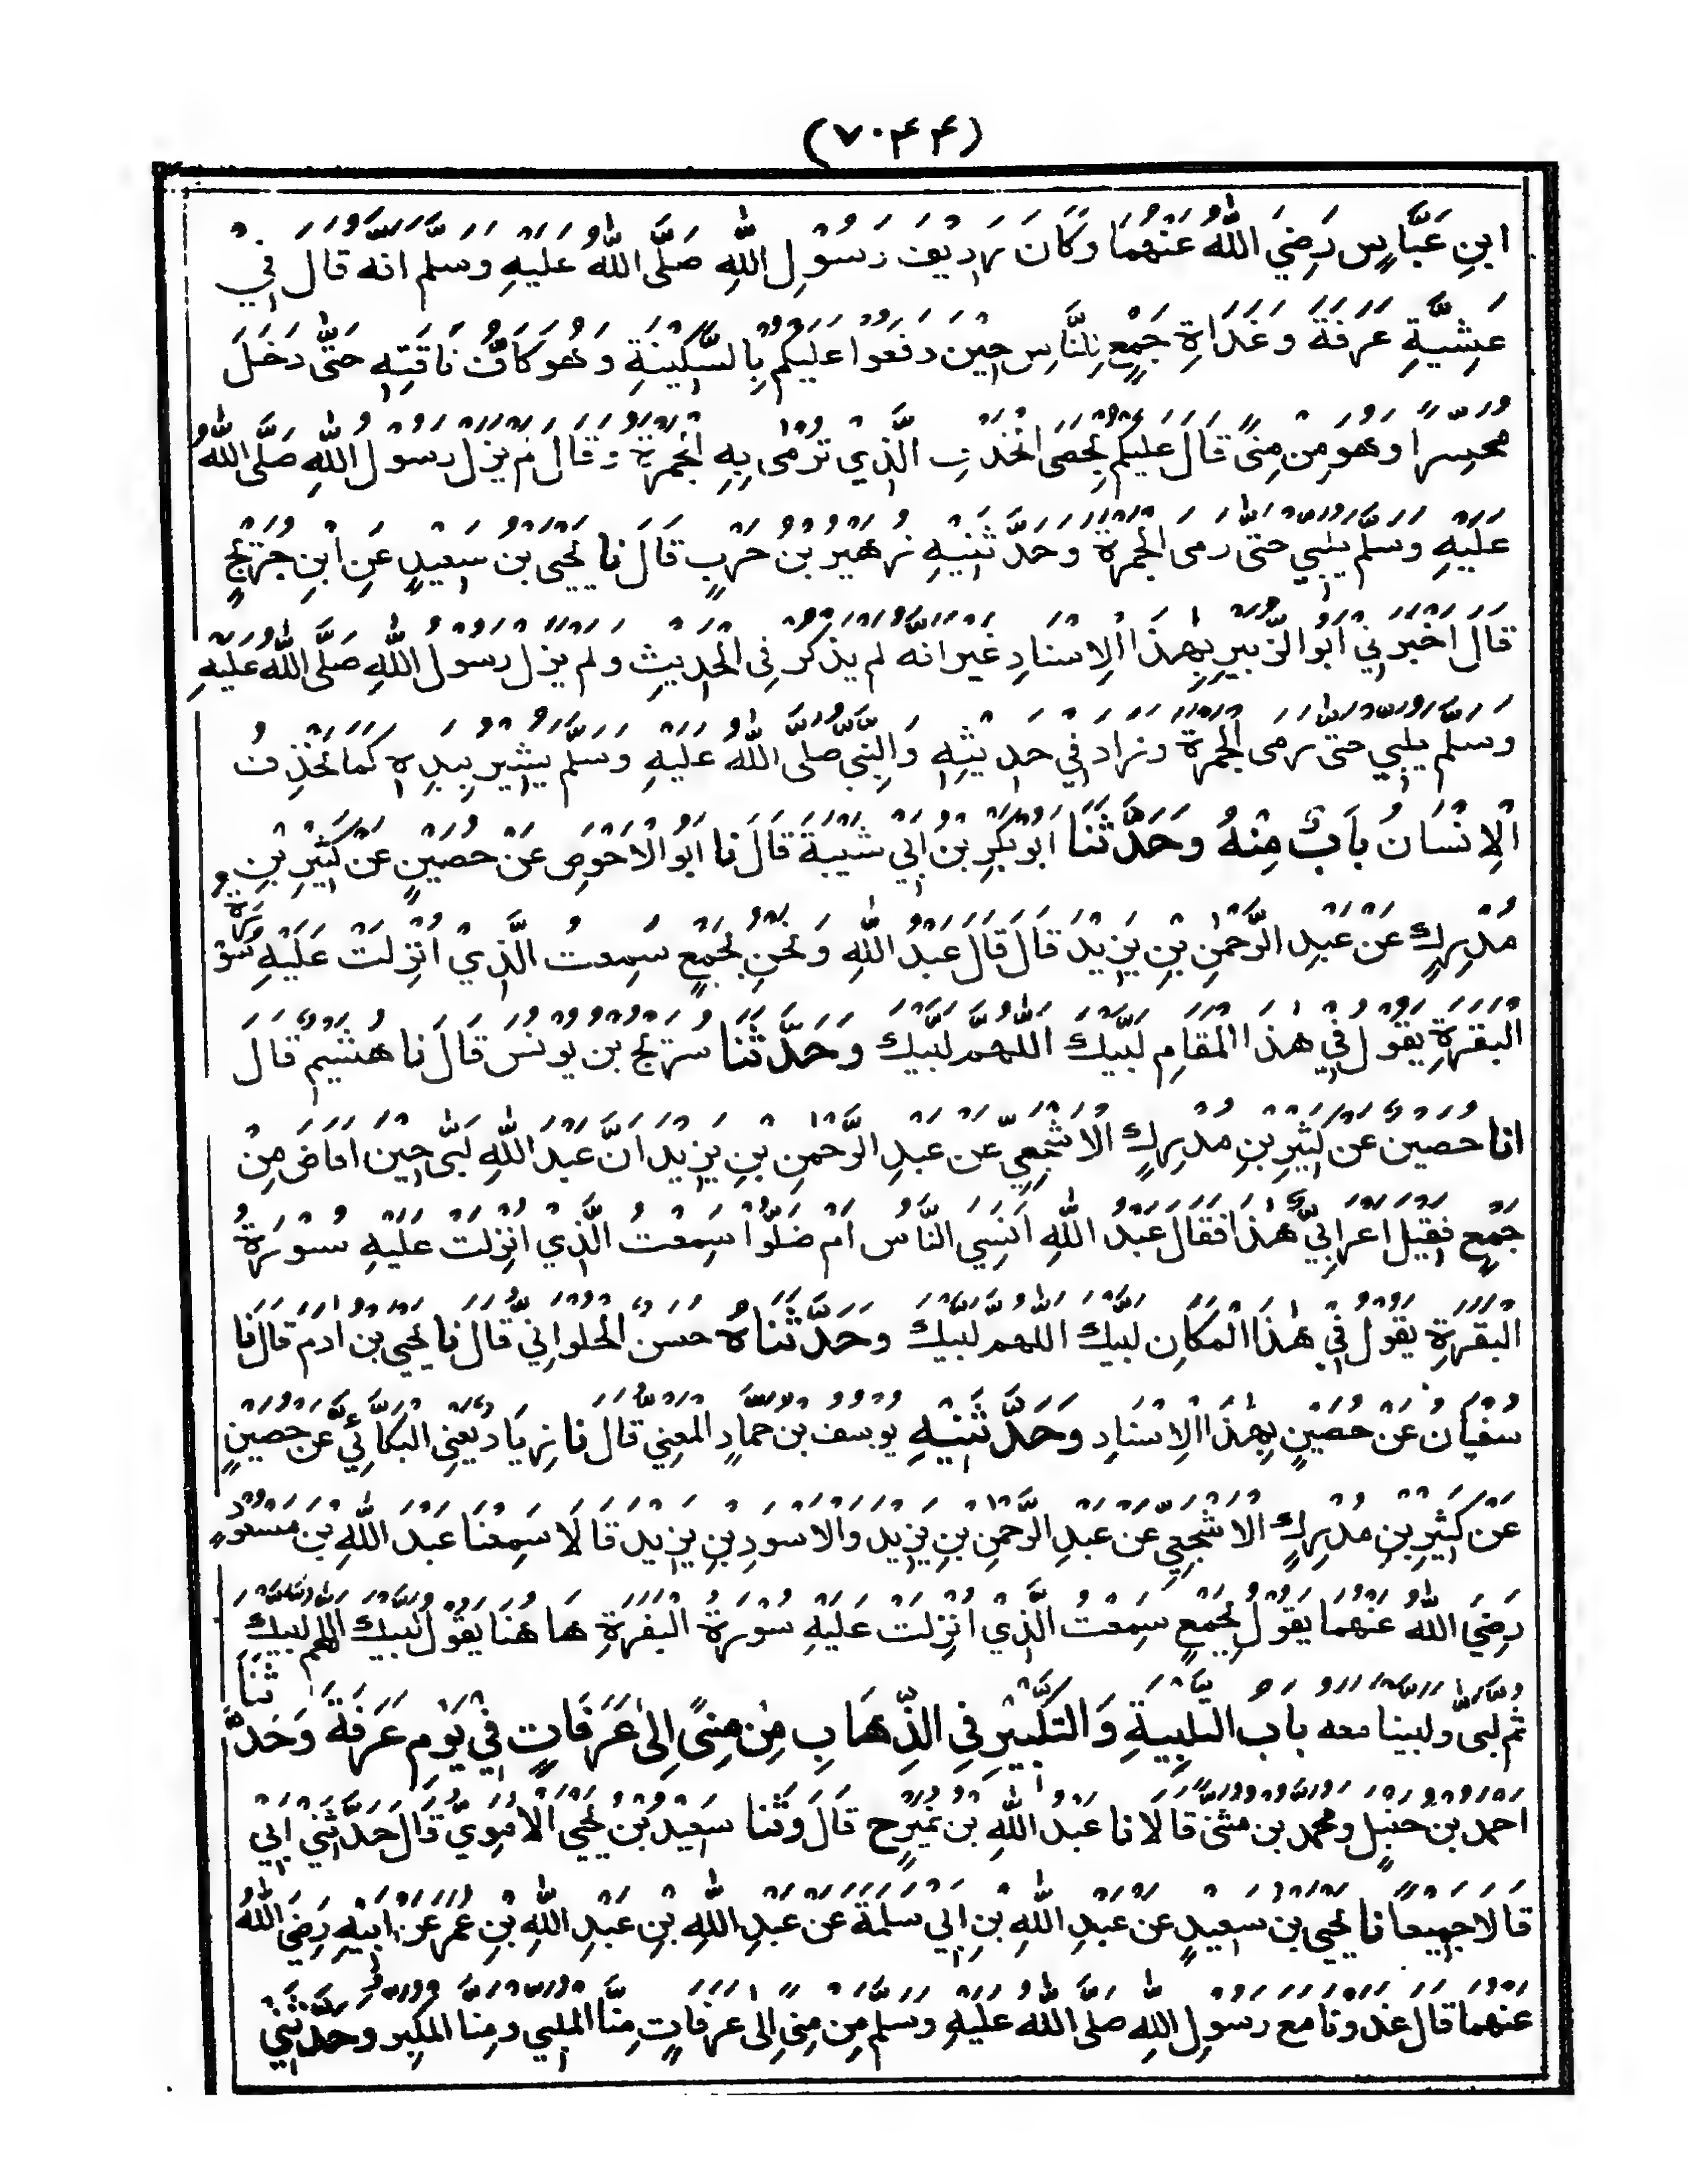 (٧٠٤٤)
ابنِ عَبَّاسٍ رَضِيَ اللّٰهُ عَنْهُمَا وَكَانَ رَدِيْفَ رَسُوْلِ اللّٰهِ صَلَّى اللّٰهُ عَلَيْهِ وَسَلَّمَ اَنَّهُ قَالَ فِيْ
عَشِيَّةِ عَرَفَةَ وَغَدَاةِ جَمْعٍ لِلنَّاسِ حِيْنَ دَفَعُوْا عَلَيْكُمْ بِالسَّكِيْنَةِ وَهُوَ كَافٌّ نَاقَتَهٖ حَتّٰى دَخَلَ
مُحَسِّرًا وَهُوَ مِنْ مِنًى قَالَ عَلَيْكُمْ بِحَصَى الْخَذْفِ الَّذِيْ تُرْمٰى بِهِ الْجَمْرَةُ وَقَالَ لَمْ يَزَلْ رَسُوْلُ اللّٰهِ صَلَّى اللّٰهُ
عَلَيْهِ وَسَلَّمَ يُلَبِّيْ حَتّٰى رَمَى الْجَمْرَةَ وَحَدَّثَنِيْهِ زُهَيْرُ بْنُ حَرْبٍ قَالَ نَا يَحْيَى بْنُ سَعِيْدٍ عَنِ ابْنِ جُرَيْجٍ
قَالَ اَخْبَرَنِيْ اَبُو الزُّبَيْرِ بِهٰذَا الْاِسْنَادِ غَيْرَ اَنَّهُ لَمْ يَذْكُرْ فِى الْحَدِيْثِ وَلَمْ يَزَلْ رَسُوْلُ اللّٰهِ صَلَّى اللّٰهُ عَلَيْهِ
وَسَلَّمَ يُلَبِّيْ حَتّٰى رَمَى الْجَمْرَةَ وَزَادَ فِيْ حَدِيْثِهٖ وَالنَّبِيُّ صَلَّى اللّٰهُ عَلَيْهِ وَسَلَّمَ يُشِيْرُ بِيَدِهٖ كَمَا يَخْذِفُ
الْاِنْسَانُ بَابٌ مِنْهُ وَحَدَّثَنَا اَبُوْ بَكْرِ بْنُ اَبِيْ شَيْبَةَ قَالَ نَا اَبُو الْاَحْوَصِ عَنْ حُصَيْنٍ عَنْ كَثِيْرِ بْنِ
مُدْرِكٍ عَنْ عَبْدِ الرَّحْمٰنِ بْنِ يَزِيْدَ قَالَ قَالَ عَبْدُ اللّٰهِ وَنَحْنُ بِجَمْعٍ سَمِعْتُ الَّذِيْ اُنْزِلَتْ عَلَيْهِ سُوْرَةُ
الْبَقَرَةِ يَقُوْلُ فِيْ هٰذَا الْمَقَامِ لَبَّيْكَ اللّٰهُمَّ لَبَّيْكَ وَحَدَّثَنَا سُرَيْجُ بْنُ يُوْنُسَ قَالَ نَا هُشَيْمٌ قَالَ
اَنَا حُصَيْنٌ عَنْ كَثِيْرِ بْنِ مُدْرِكٍ الْاَشْجَعِيِّ عَنْ عَبْدِ الرَّحْمٰنِ بْنِ يَزِيْدَ اَنَّ عَبْدَ اللّٰهِ لَبّٰى حِيْنَ اَفَاضَ مِنْ
جَمْعٍ فَقِيْلَ اَعْرَابِيٌّ هٰذَا فَقَالَ عَبْدُ اللّٰهِ اَنَسِيَ النَّاسُ اَمْ ضَلُّوْا سَمِعْتُ الَّذِيْ اُنْزِلَتْ عَلَيْهِ سُوْرَةُ
الْبَقَرَةِ يَقُوْلُ فِيْ هٰذَا الْمَكَانِ لَبَّيْكَ اللّٰهُمَّ لَبَّيْكَ وَحَدَّثَنَاهُ حَسَنٌ الْحُلْوَانِيُّ قَالَ نَا يَحْيَى بْنُ اٰدَمَ قَالَ نَا
سُفْيَانُ عَنْ حُصَيْنٍ بِهٰذَا الْاِسْنَادِ وَحَدَّثَنِيْهِ يُوْسُفُ بْنُ حَمَّادٍ الْمَعْنِيُّ قَالَ نَا زِيَادٌ يَعْنِى الْبَكَّائِيَّ عَنْ حُصَيْنٍ
عَنْ كَثِيْرِ بْنِ مُدْرِكٍ الْاَشْجَعِيِّ عَنْ عَبْدِ الرَّحْمٰنِ بْنِ يَزِيْدَ وَالْاَسْوَدِ بْنِ يَزِيْدَ قَالَا سَمِعْنَا عَبْدَ اللّٰهِ بْنَ مَسْعُوْدٍ
رَضِيَ اللّٰهُ عَنْهُمَا يَقُوْلُ بِجَمْعٍ سَمِعْتُ الَّذِيْ اُنْزِلَتْ عَلَيْهِ سُوْرَةُ الْبَقَرَةِ هَا هُنَا يَقُوْلُ لَبَّيْكَ اللّٰهُمَّ لَبَّيْكَ
ثُمَّ لَبّٰى وَلَبَّيْنَا مَعَهُ بَابُ التَّلْبِيَةِ وَالتَّكْبِيْرِ فِى الذِّهَابِ مِنْ مِنًى اِلٰى عَرَفَاتٍ فِيْ يَوْمِ عَرَفَةَ وَحَدَّثَنَا
اَحْمَدُ بْنُ حَنْبَلٍ وَمُحَمَّدُ بْنُ مُثَنّٰى قَالَا نَا عَبْدُ اللّٰهِ بْنُ نُمَيْرٍ ح قَالَ وَثَنَا سَعِيْدُ بْنُ يَحْيَى الْاُمَوِيُّ قَالَ حَدَّثَنِيْ اَبِيْ
قَالَا جَمِيْعًا نَا يَحْيَى بْنُ سَعِيْدٍ عَنْ عَبْدِ اللّٰهِ بْنِ اَبِيْ سَلَمَةَ عَنْ عَبْدِ اللّٰهِ بْنِ عَبْدِ اللّٰهِ بْنِ عُمَرَ عَنْ اَبِيْهِ رَضِيَ اللّٰهُ
عَنْهُمَا قَالَ غَدَوْنَا مَعَ رَسُوْلِ اللّٰهِ صَلَّى اللّٰهُ عَلَيْهِ وَسَلَّمَ مِنْ مِنًى اِلٰى عَرَفَاتٍ مِنَّا الْمُلَبِّيْ وَمِنَّا الْمُكَبِّرُ وَحَدَّثَنِيْ